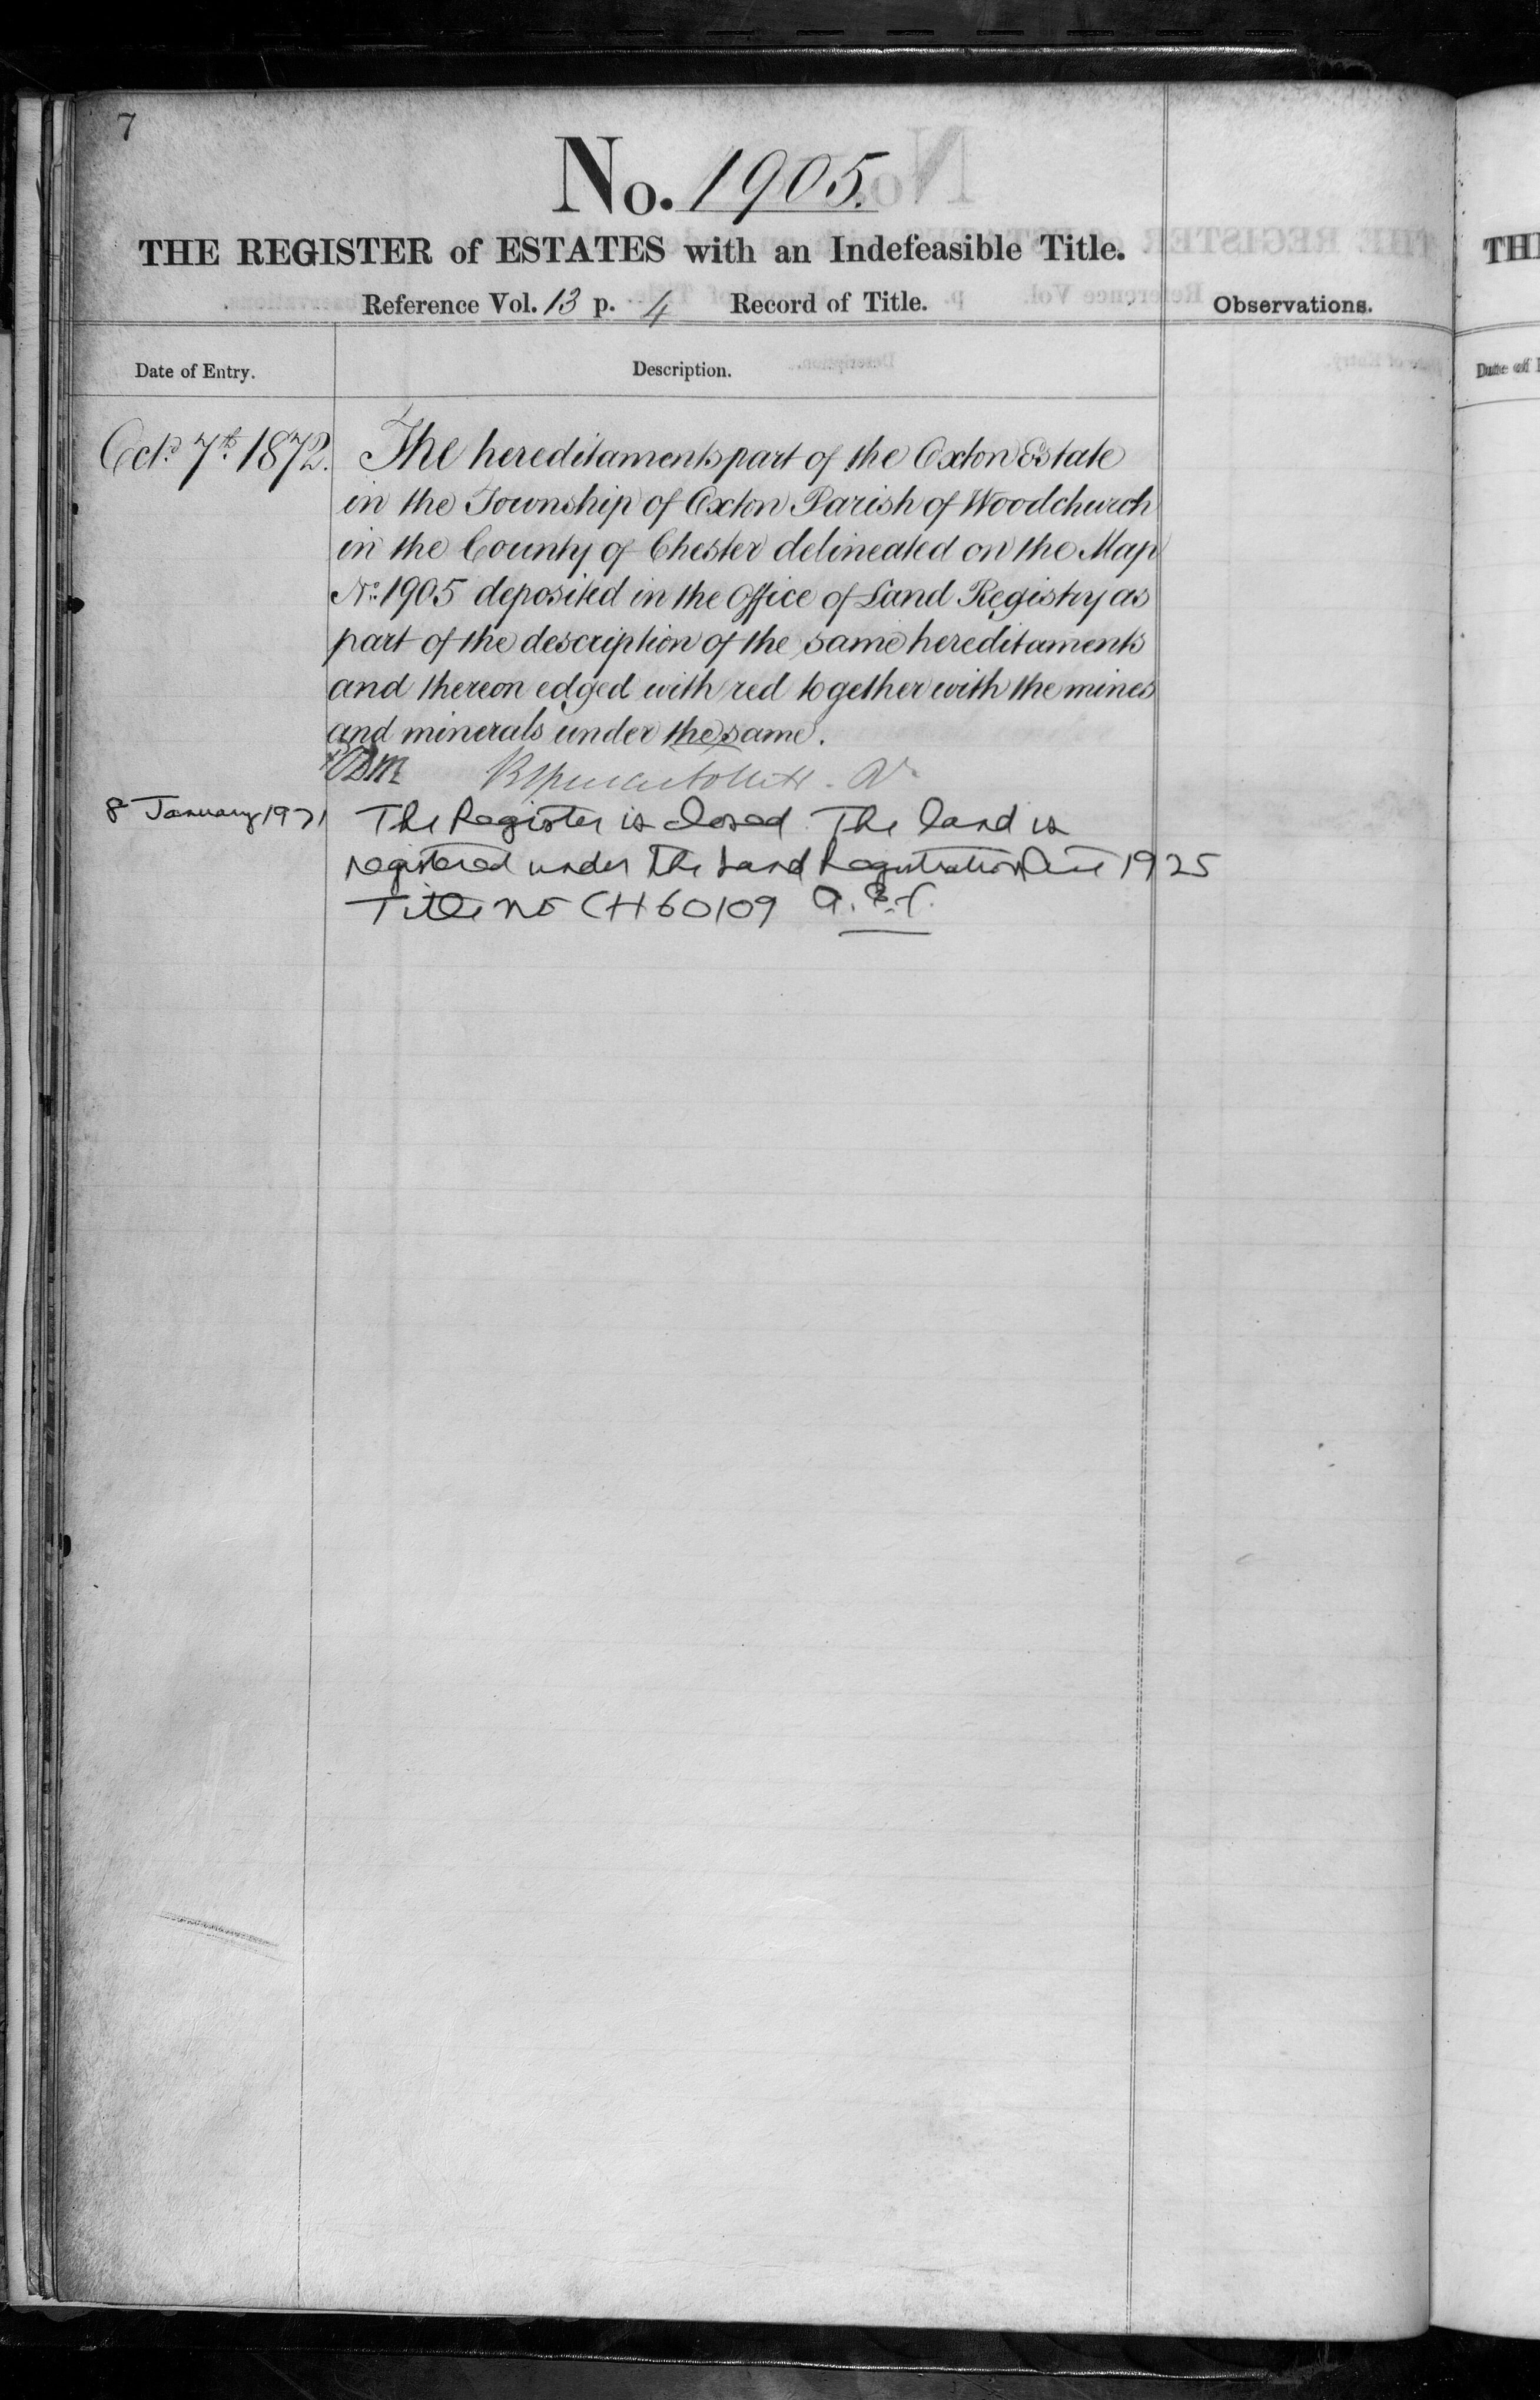 7
No. 1905.
THE REGISTER of ESTATES with an Indefeasible Title.
Reference Vol. 13 p. 4 Record of Title.
Observations.
Date of Entry.
Description.
Octr 7th 1872.
The hereditaments part of the Oxton Estate
in the Township of Oxton Parish of Woodchurch
in the County of Chester delineated on the Map
No. 1905 deposited in the Office of Land Registry as
part of the description of the same hereditaments
and thereon edged with red together with the mines
and minerals under the same.
8 January 1971
The Register is closed. The land is
registered under the Land Registration Act 1925
Title no CH60109
TH
Date of